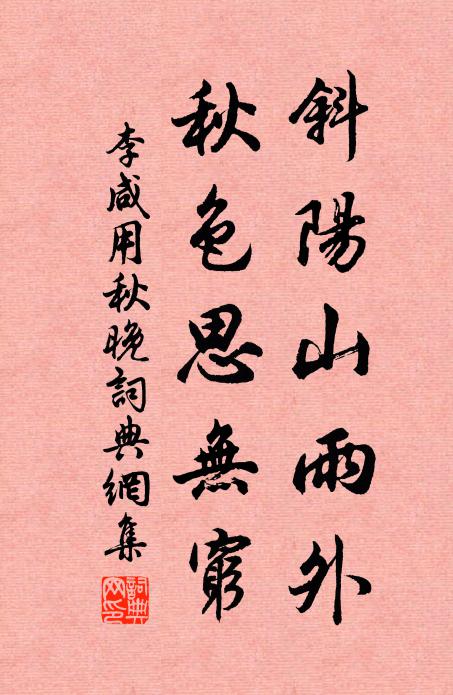 斜陽山雨外
秋色思無窮
李咸用秋晚詞典網集
詞典网印